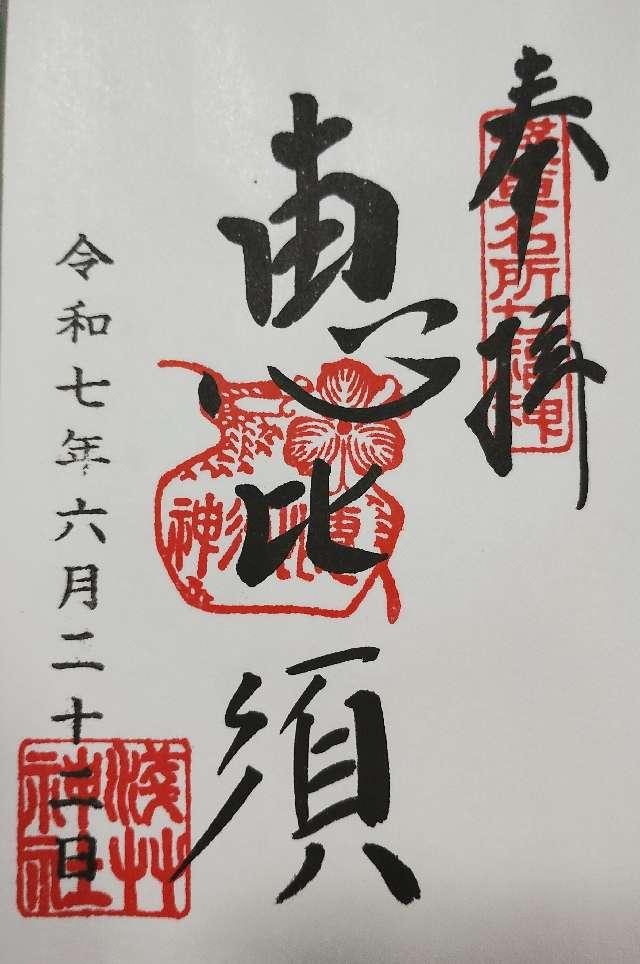 奉拝
浅草名所七福神
恵比須
恵比須神
令和七年六月二十二日
浅草神社